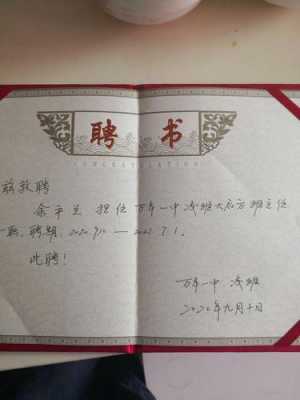 聘书
CONGRATULATION
兹敦聘
余平兰 担任 万年一中 凌班大后方班主任
一职,聘期:2020.9.10 — 2021.7.1.
此聘!
万年一中 凌班
二〇二〇年九月十日